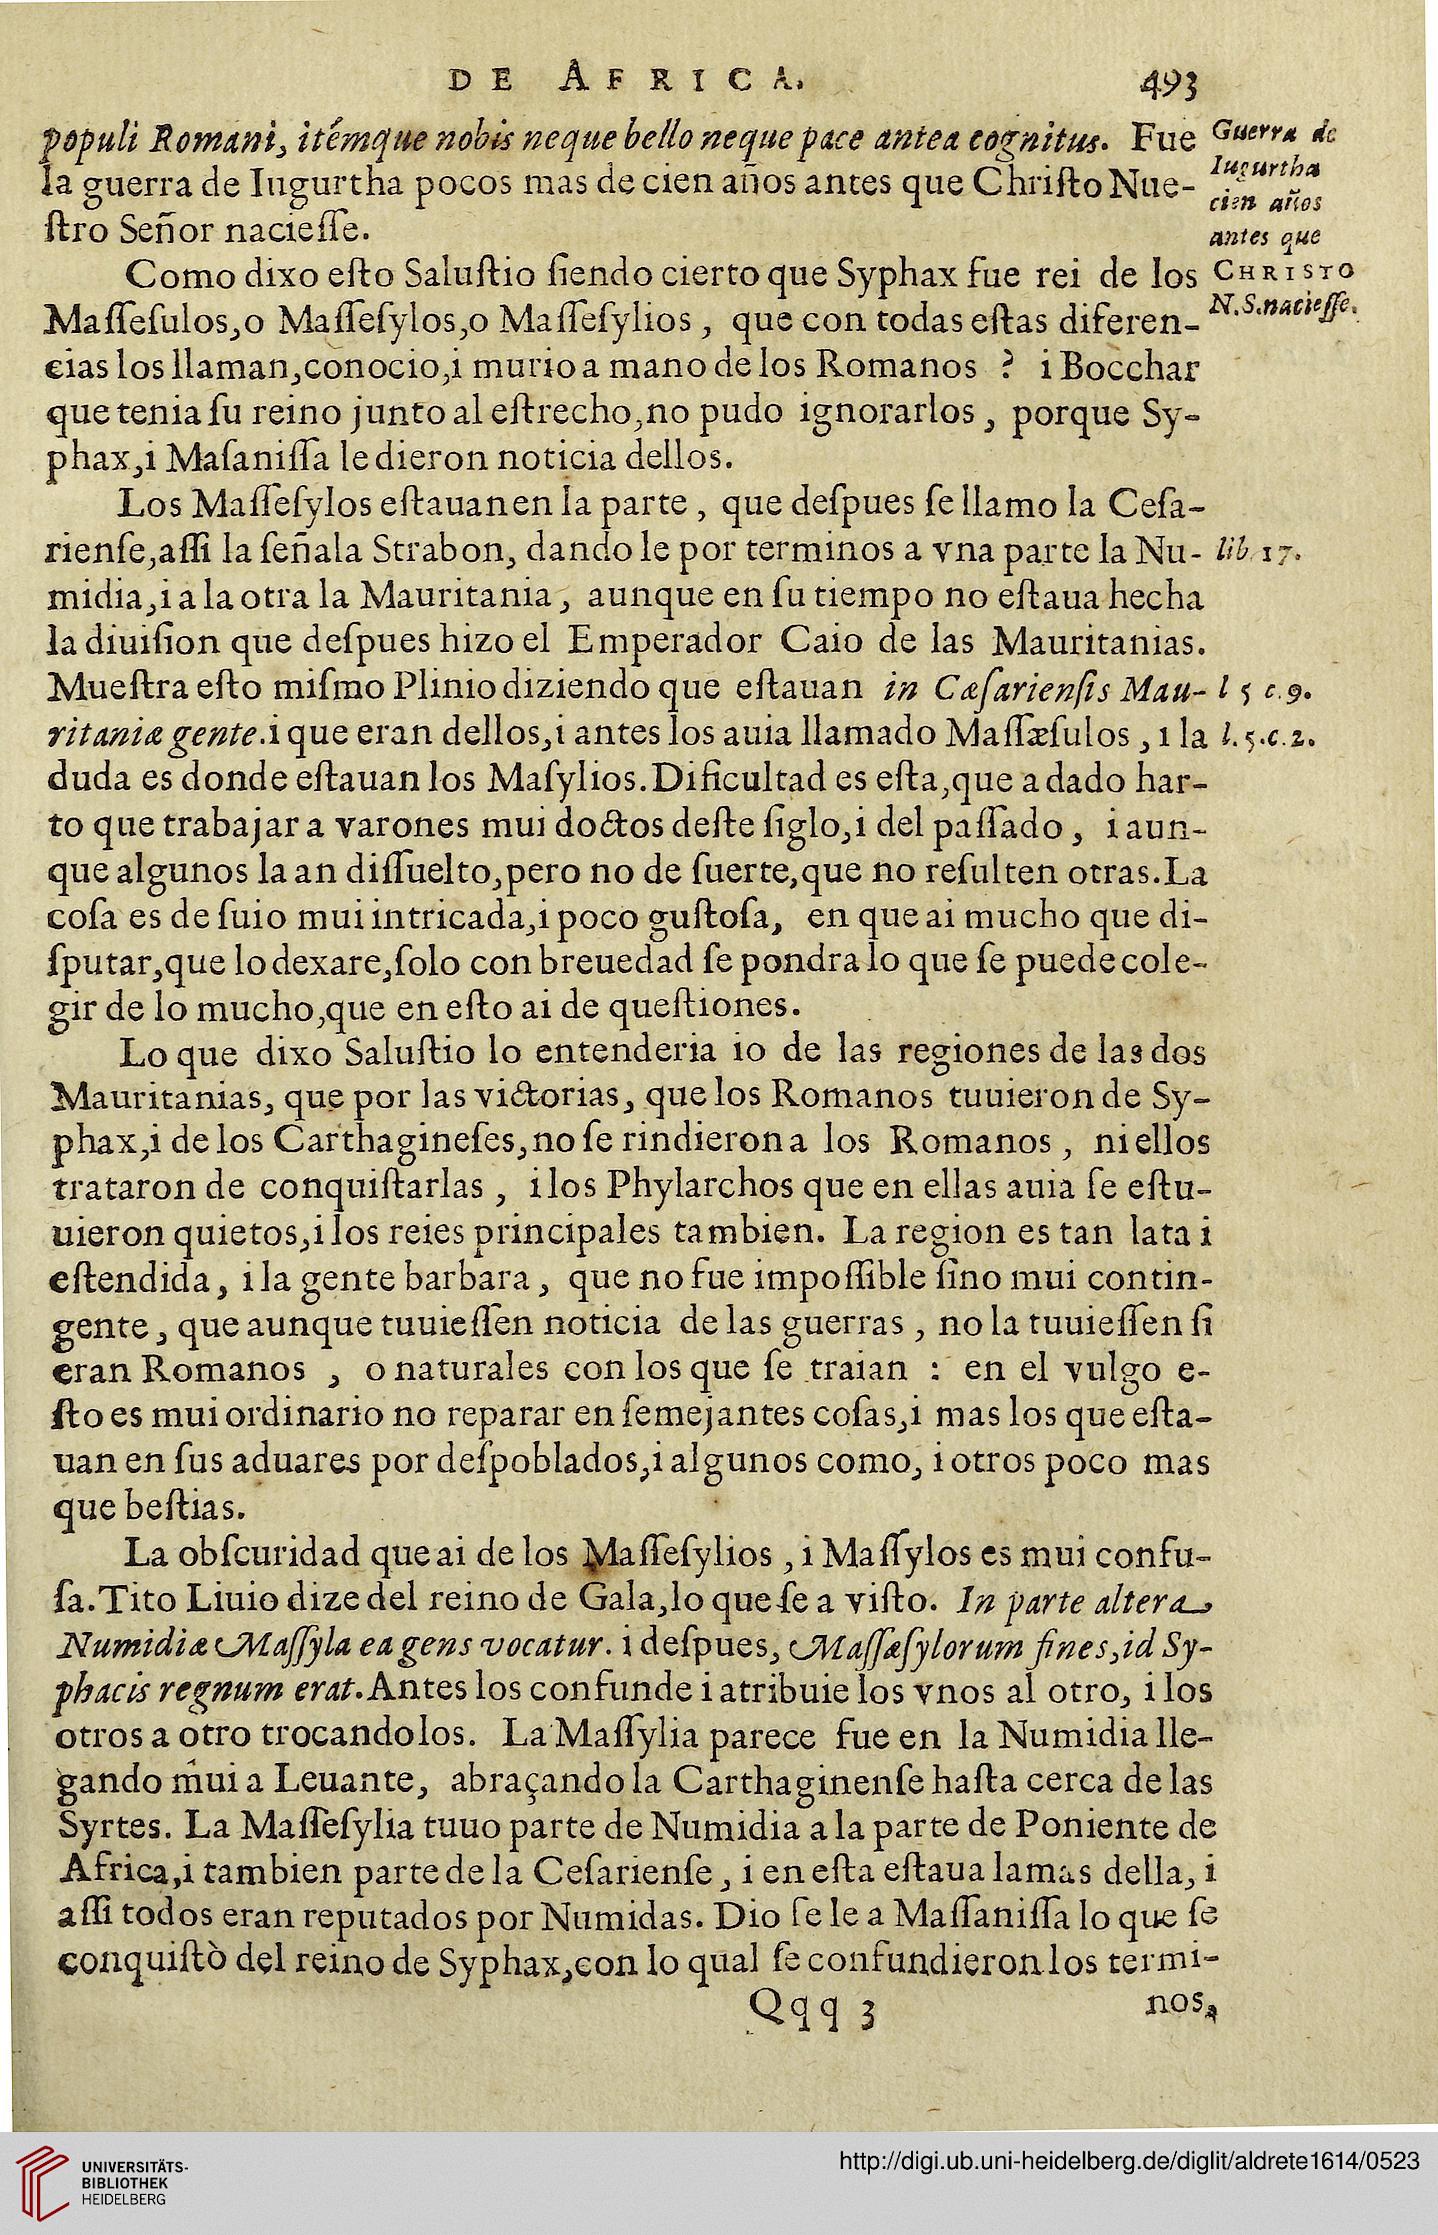 DE AFRICA.
493
populi Romani, itémque nobis neque bello neque pace antea cognitus. Fue
la guerra de Iugurtha pocos mas de cien años antes que Chriſto Nue-
ſtro Señor nacieſſe.
Guerra de
Iugurtha
cien años
antes que
CHRISTO
N.S.nacieſſe.
Como dixo eſto Saluſtio ſiendo cierto que Syphax fue rei de los
Maſſeſulos,o Maſſeſylos,o Maſſeſylios, que con todas eſtas diferen-
cias los llaman,conocio,i murio a mano de los Romanos ? i Bocchar
que tenia ſu reino junto al eſtrecho,no pudo ignorarlos, porque Sy-
phax,i Maſaniſſa le dieron noticia dellos.
Los Maſſeſylos eſtauan en la parte, que deſpues ſe llamo la Ceſa-
rienſe,aſſi la ſeñala Strabon, dandole por terminos a vna parte la Nu-
lib. 17.
midia,i a la otra la Mauritania, aunque en ſu tiempo no eſtaua hecha
la diuiſion que deſpues hizo el Emperador Caio de las Mauritanias.
Mueſtra eſto miſmo Plinio diziendo que eſtauan in Cæſarienſis Mau-
l 5 c.9.
ritaniæ gente.i que eran dellos,i antes los auia llamado Maſſæſulos, i la
l.5.c.2.
duda es donde eſtauan los Maſylios.Dificultad es eſta,que a dado har-
to que trabajar a varones mui doctos deſte ſiglo,i del paſſado, i aun-
que algunos la an diſſuelto,pero no de ſuerte,que no reſulten otras.La
coſa es de ſuio mui intricada,i poco guſtoſa, en que ai mucho que di-
ſputar,que lo dexare,ſolo con breuedad ſe pondra lo que ſe puede cole-
gir de lo mucho,que en eſto ai de queſtiones.
Lo que dixo Saluſtio lo entenderia io de las regiones de las dos
Mauritanias, que por las victorias, que los Romanos tuuieron de Sy-
phax,i de los Carthagineſes,no ſe rindieron a los Romanos, ni ellos
trataron de conquiſtarlas, i los Phylarchos que en ellas auia ſe eſtu-
uieron quietos,i los reies principales tambien. La region es tan lata i
eſtendida, i la gente barbara, que no fue impoſſible ſino mui contin-
gente, que aunque tuuieſſen noticia de las guerras, no la tuuieſſen ſi
eran Romanos , o naturales con los que ſe traian : en el vulgo e-
ſto es mui ordinario no reparar en ſemejantes coſas,i mas los que eſta-
uan en ſus aduares por deſpoblados,i algunos como, i otros poco mas
que beſtias.
La obſcuridad que ai de los Maſſeſylios, i Maſſylos es mui confu-
ſa.Tito Liuio dize del reino de Gala,lo que ſe a viſto. In parte altera
Numidiæ Maſſyla ea gens vocatur. i deſpues, Maſſæſylorum fines,id Sy-
phacis regnum erat.Antes los confunde i atribuie los vnos al otro, i los
otros a otro trocandolos. La Maſſylia parece fue en la Numidia lle-
gando mui a Leuante, abraçando la Carthaginenſe haſta cerca de las
Syrtes. La Maſſeſylia tuuo parte de Numidia a la parte de Poniente de
Africa,i tambien parte de la Ceſarienſe, i en eſta eſtaua la mas della, i
aſſi todos eran reputados por Numidas. Dio ſe le a Maſſaniſſa lo que ſe
conquiſtò del reino de Syphax,con lo qual ſe confundieron los termi-
Qqq 3
nos,
UNIVERSITÄTS-
BIBLIOTHEK
HEIDELBERG
http://digi.ub.uni-heidelberg.de/diglit/aldrete1614/0523